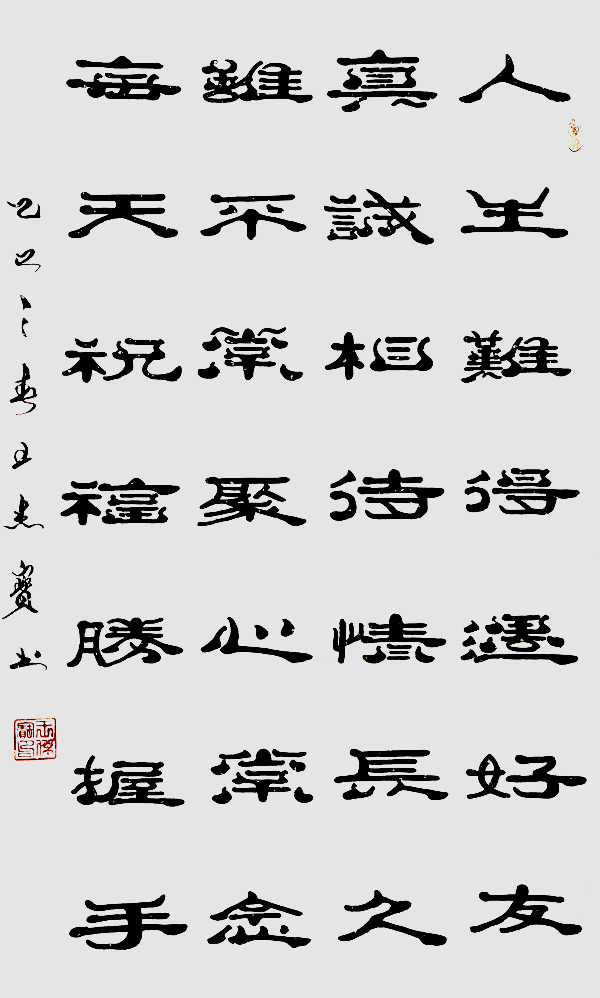 人生難得遇好友
真誠相待情長久
雖不常聚心常念
每天祝福勝握手
乙巳之春王杰寶书